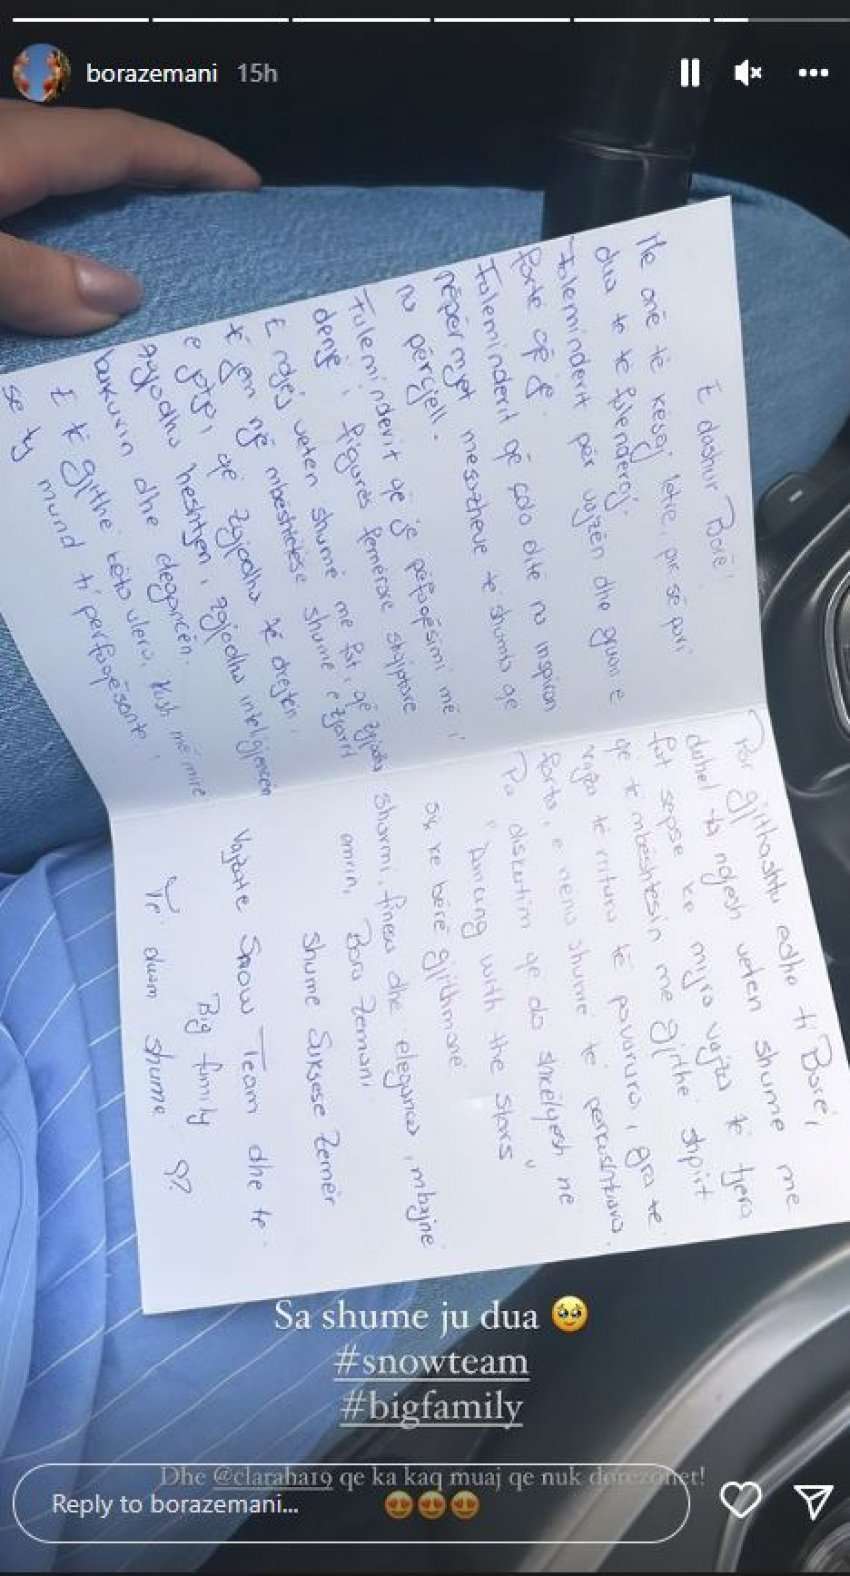 borazemani 15h
E dashur Borë!
Me anë të kësaj letre, për së pari
dua të të falenderoj.
Faleminderit për vajzën dhe gruan e
fortë që je.
Faleminderit që çdo ditë na inspiron
nëpërmjet mesazheve të shumta që
na përcjell.
Faleminderit që je përfaqësimi më i
denjë i figurës femërore shqiptare
E ndjej veten shumë me fat, që zgjodha
të jem një mbështetëse shumë e zjarrt
e jotja, që zgjodha të drejtën,
zgjodha heshtjen, zgjodha inteligjencën
bukurin dhe elegancën.
E të gjitha këto vlera, kush më mirë
se ty mund ti përfaqësonte,
Por gjithashtu edhe ti Borë,
duhet ta ndjesh veten shumë me
fat sepse ke mijra vajza të tjera
që të mbështesin me gjithë shpirt
vajza të rritura të pavarura, gra të
forta, e nëna shumë të përkushtuara.
Pa diskutim që do shkëlqesh në
"Dancing with the stars"
siç ke bërë gjithmonë
sharmi, finesa dhe eleganca, mbajnë
emrin, Bora Zemani
Shumë Suksese Zemër
Vajzate Snow Team dhe te
Big family
Të duam shumë
Sa shume ju dua 🥹
#snowteam
#bigfamily
Dhe @claraha19 qe ka kaq muaj qe nuk dorezohet!
😍😍😍
Reply to borazemani...